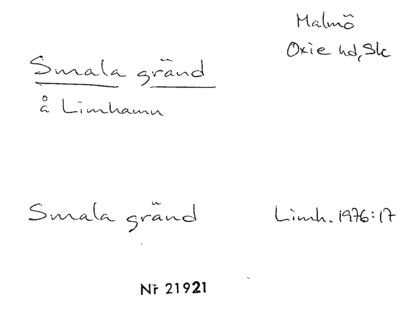 Malmö
Oxie hd, Sk
Smala gränd
å Limhamn
Smala gränd
Limh. 1976:17
Nr 21921